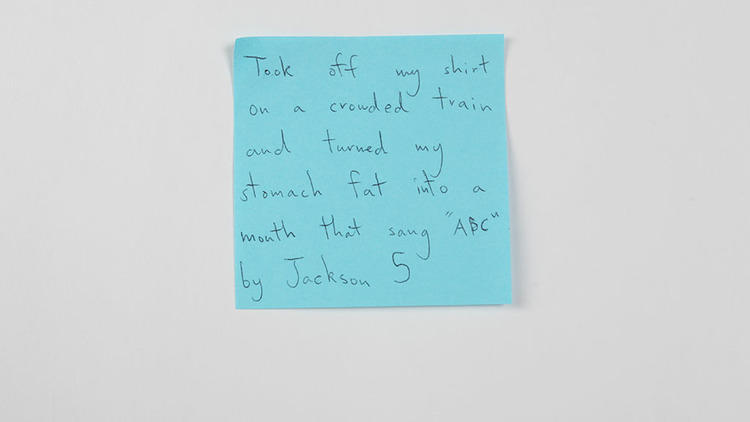 Took off my shirt
on a crowded train
and turned my
stomach fat into a
mouth that sang "ABC"
by Jackson 5